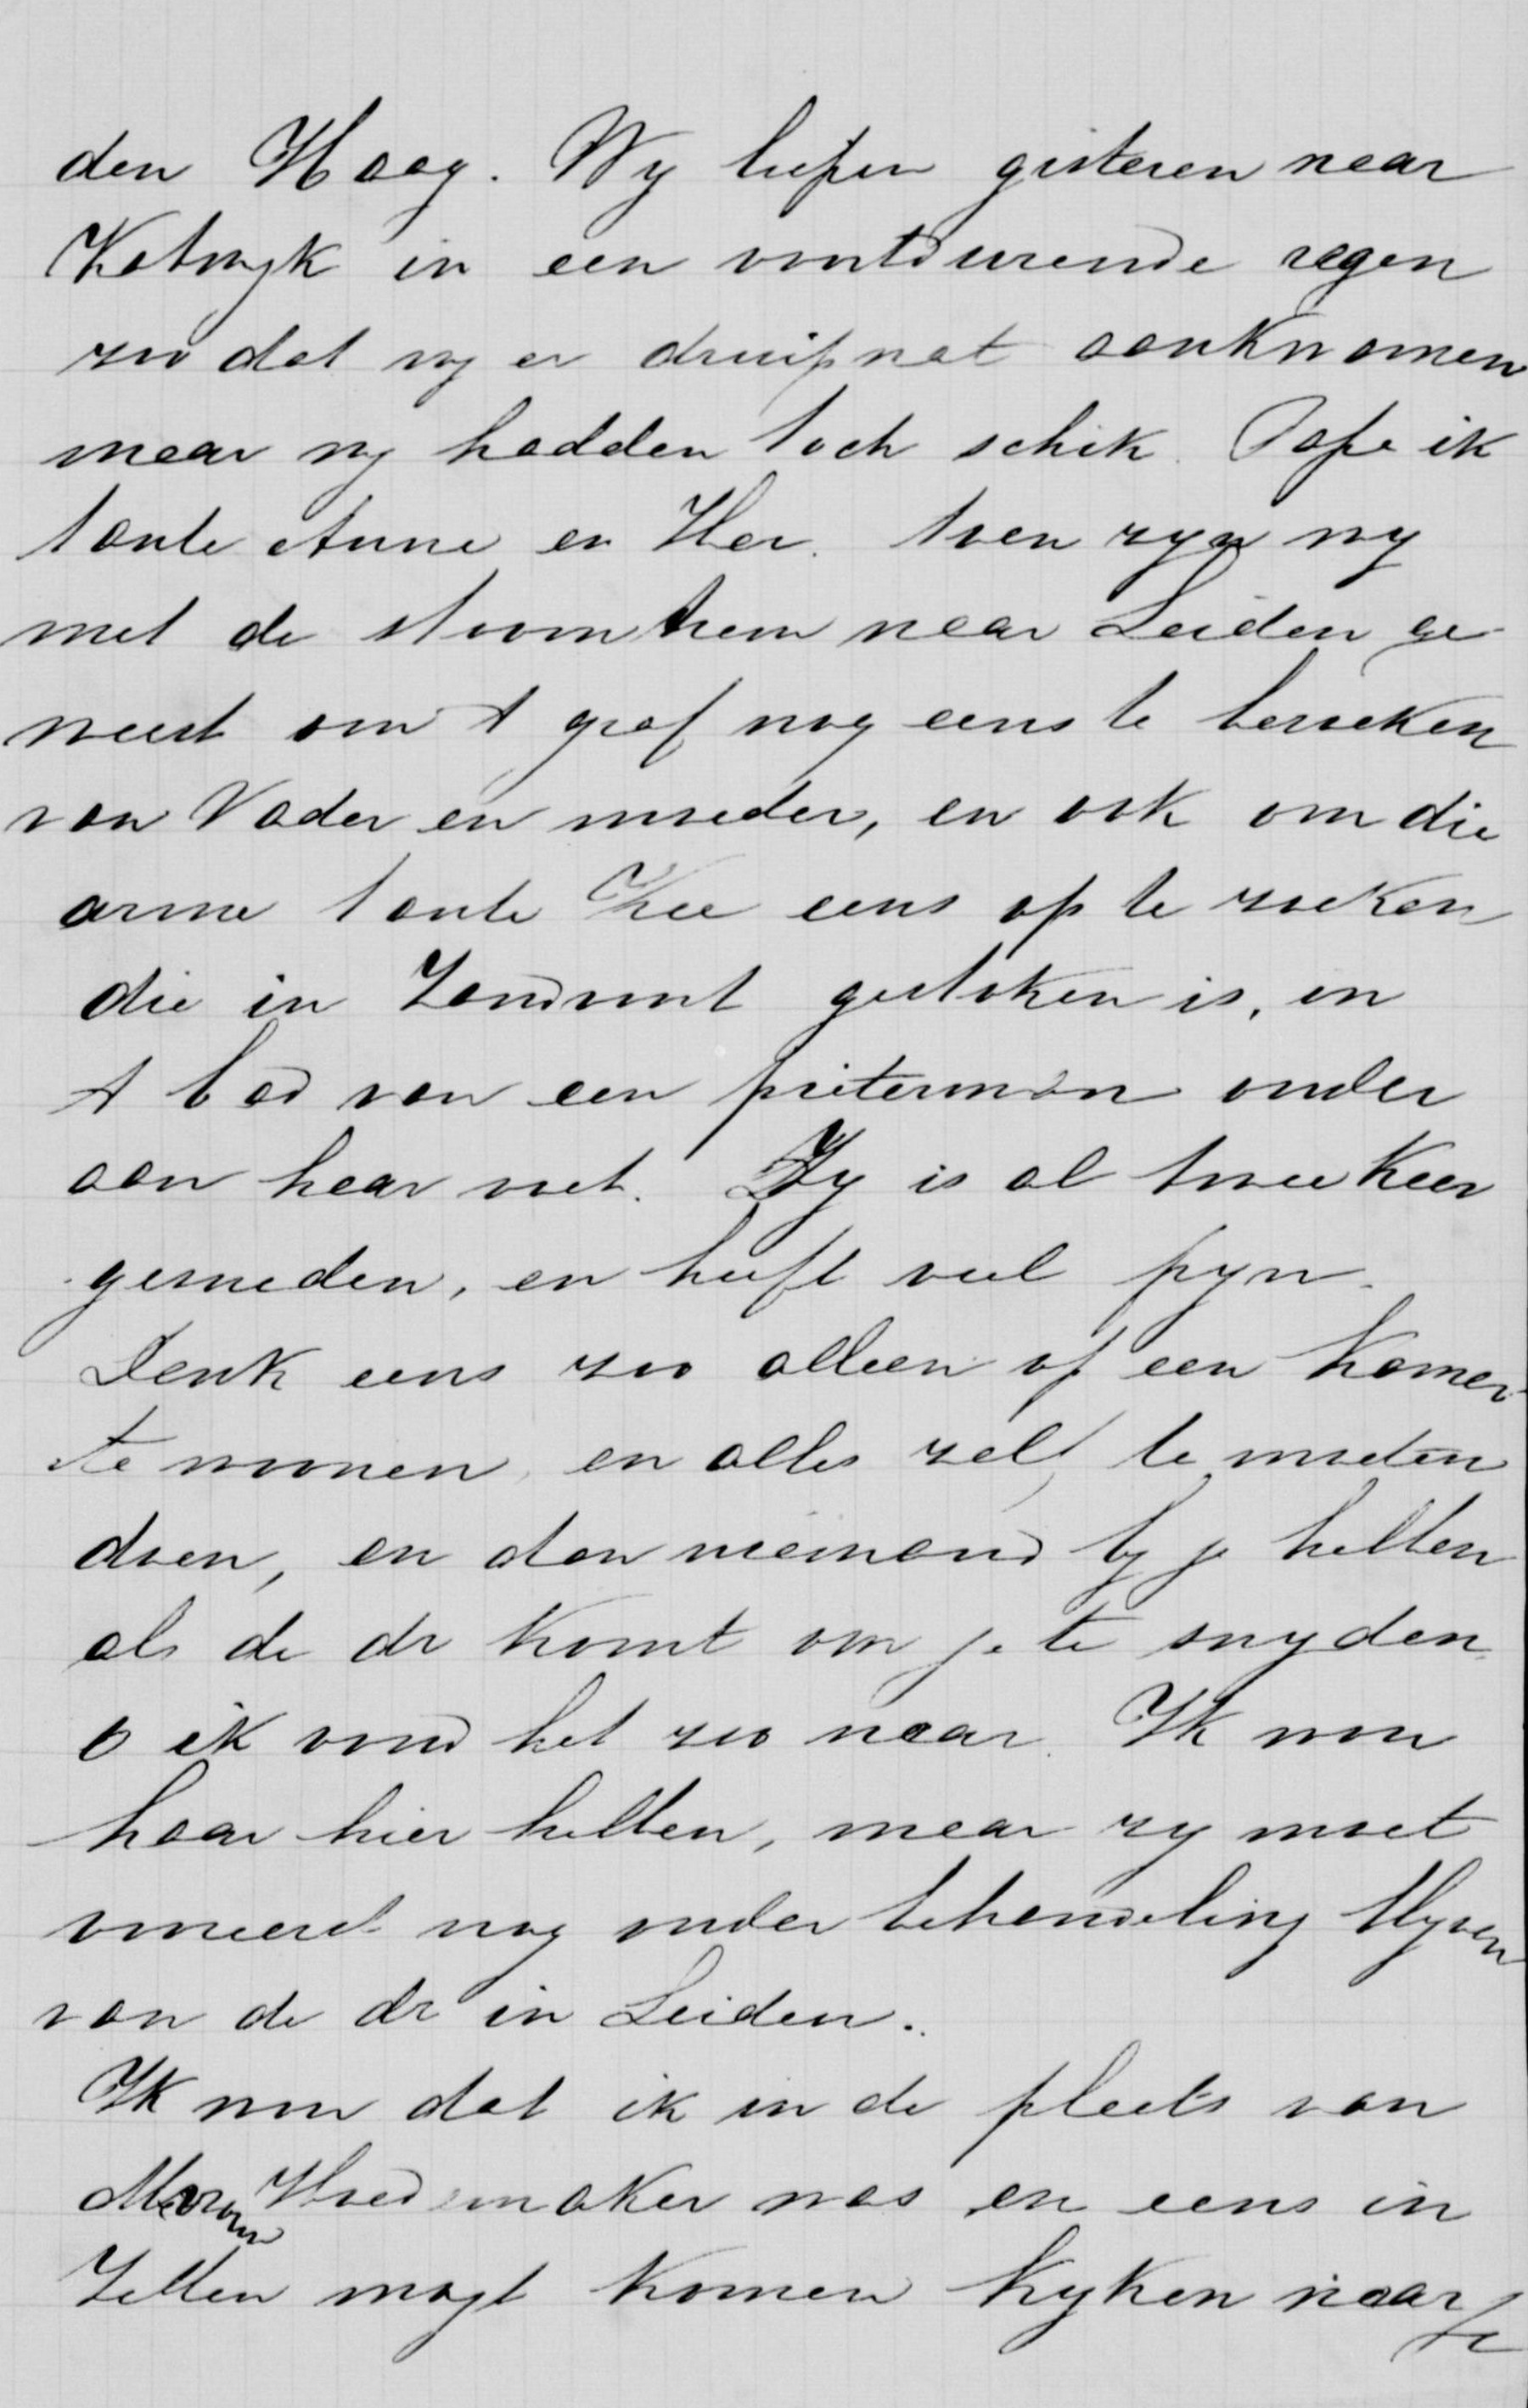 den Haag. Wy liepen gisteren naar
Katwyk in een voortdurende regen
zoo dat wy er druipnat aankwamen
maar wy hadden toch schik. Papa ik
tante Anna en Her. toen zyn wy
met de stoomtram naar Leiden ge
weest om 't graf nog eens te bezoeken
van Vader en moeder, en ook om die
arme tante Kee eens op te zoeken
die in Zandvoort gestoken is, in
't bad van een pieterman onder
aan haar voet. Zy is al twee keer
gesneden, en heeft veel pyn.
Denk eens zoo alleen op een kamer
te wonen, en alles zelf te moeten
doen, en dan niemand by je hebben
als de dr komt om je te snyden,
o ik vond het zoo naar. Ik wou
haar hier hebben, maar zy moet
vooreerst nog onder behandeling blyven
van de dr in Leiden.
Ik wou dat ik in de plaats van
Hoedemaker was en eens in
Zetten mogt komen kyken naar je